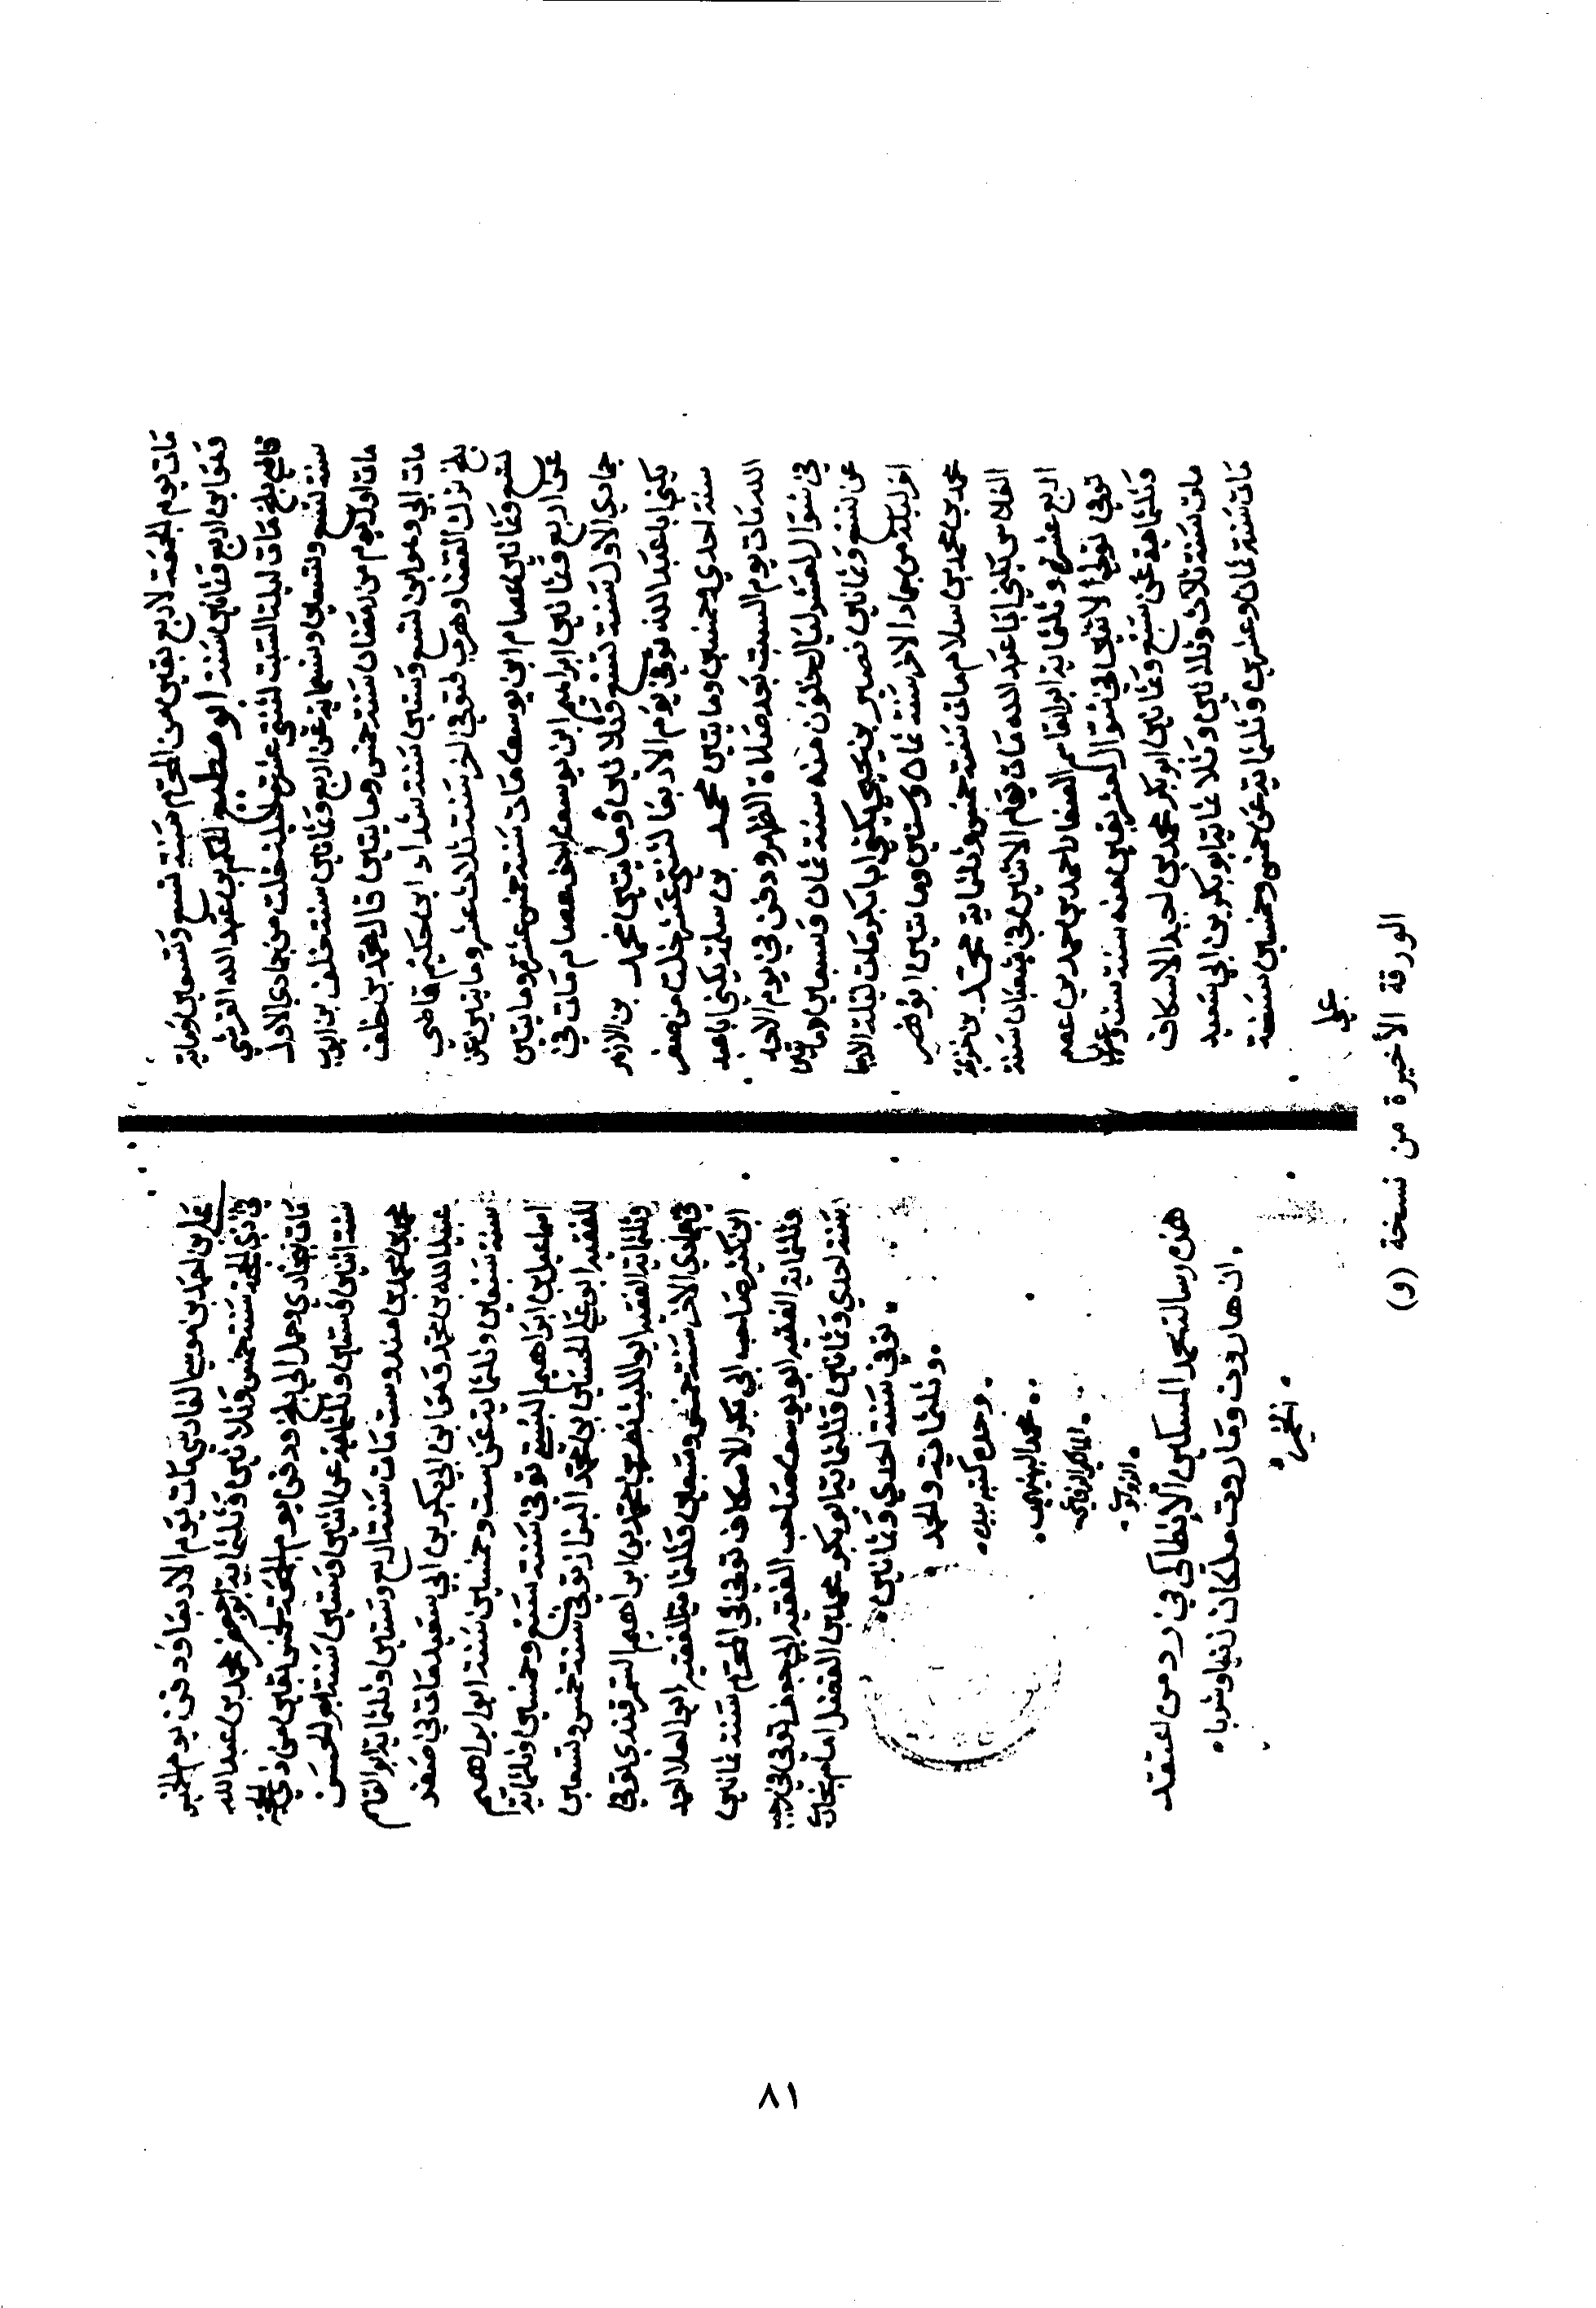 مات يوم الجمعة لاربع بقين من المحرم سنة تسع وتسعين وماية
وهو ابن اربع وثمانين سنة ابو مطيع الحكم بن عبد الله القرشي
قاضي بلخ مات ليلة السبت لثنتي عشرة ليلة خلت من جمادي الاول
سنة تسع وتسعين وتسعماية عن اربع وثمانين سنة خلف بن ايوب
مات اول يوم من رمضان سنة خمس ومايتين قال محمد بن خلف
مات ابي وهو ابن تسع وستين سنة شداد ابن حكيم قاضي
بلخ ترك القضا وهرب فتوفي اخر سنة ثلاث عشر ومايتين عن
تسع وثمانين عصام ابن يوسف مات سنة خمس عشرة ومايتين
عن اربع وثمانين ابراهيم ابن يوسف اخو عصام مات في
جمادي الاول سنة تسع وثلاثين ومأيتين محمد بن الازهر
يكنى ابا عبد الله توفي يوم الاربعا لثنتي عشر خلت من صفر
سنة احدي وخمسين ومايتين محمد بن سلمة يكني ابا عبد
الله مات يوم السبت بعد صلاة الظهر ودفن في يوم الاحد
في شوال لعشر ليال خلون منه سنة ثمان وسبعين ومايتين
عن تسع وثمانين نصير بن يحيى يكني ابا بكر مات ليلة الاربعا
اخر ليلة من جماد الاخر سنة ثمان وستين ومايتين ابو نصر
محمد بن محمد بن سلام مات سنة خمس وثلثماية محمد بن خزيمة
القلاس يكني ابا عبد الله مات يوم الاثنين في شعبان سنة
اربع عشرة وثلثماية ابو القاسم الصفار احمد بن حمد بن عصم
توفي يوم الاثنين في شوال لعشر بقين منه سنة ست وعشرين
وثلثماية عن سبع وثمانين ابو بكر محمد بن احمد الاسكاف
مات سنة ثلاث وثلاثين وثلاثماية ابو بكر بن ابي سعيد
مات سنة ثمان وعشرين وثلثماية عن خمس وخمسين سنة
علي
علي بن احمد بن موسى الفارسي مات يوم الاربعا ودفن يوم الخميس
في ذي الحجة سنة خمس وثلاثين وثلثماية ابو جعفر محمد بن عبد الله
مات ببخاري وحمل الي بلخ ودفن يوم الجمعة لخمس بقين من ذي الحجة
سنة اثنين وستين وثلثماية عن اثنين وستين سنة ابو الحسن
محمد بن محمد بن مندوست مات سنة اربع وستين وثلثماية ابو القاسم
عبيد الله بن محمد وهو ابن ابي بكر بن ابي سعيد مات في صفر
سنة سبعين وثلثماية عن ست وخمسين سنة ابو ابراهيم
اسماعيل بن ابراهيم البستي توفي سنة سبع وخمسين وثلثماية
الفقيه ابو علي الحسين بن محمد البزاز توفي سنة خمس وتسعين
وثلثماية الفقيه ابو الليث نصر بن محمد بن ابراهيم السمرقندي توفي
في جمادي الاخر سنة خمس وسبعين وثلثماية الفقيه ابو العلا احمد
ابن كثير صاحب ابي بكر الاسكاف توفي في المحرم سنة ثمانين
وثلثماية الفقيه ابو يوسف صاحب الفقيه ابي جعفر توفي في رجب
سنة احدي وثمانين وثلثماية ابو بكر محمد بن الفضل امام بخارى
توفي سنة احدي وثمانين
وثلثماية والحمد
وحده كتبه بيده
محمد البهنسي
المالكي الرفاعي
هذه رسالة محمد المسكين الانطاكي في رد من اعتقد
ان هاروت وماروت ملكان زنيا وشربا
الخمر
الورقة الأخيرة من نسخة (و)
٨١